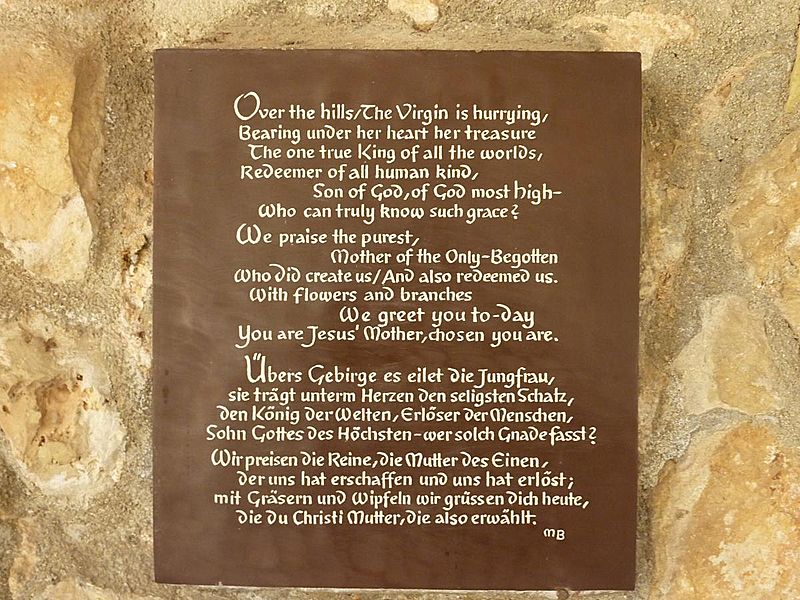 Over the hills/The Virgin is hurrying,
Bearing under her heart her treasure
The one true King of all the worlds,
Redeemer of all human kind,
Son of God, of God most high-
Who can truly know such grace?
We praise the purest,
Mother of the Only-Begotten
Who did create us/And also redeemed us.
With flowers and branches
We greet you to-day
You are Jesus' Mother, chosen you are.
Übers Gebirge es eilet die Jungfrau,
sie trägt unterm Herzen den seligsten Schatz,
den König der Welten, Erlöser der Menschen,
Sohn Gottes des Höchsten-wer solch Gnade fasst?
Wir preisen die Reine, die Mutter des Einen,
der uns hat erschaffen und uns hat erlöst;
mit Gräsern und Wipfeln wir grüssen dich heute,
die du Christi Mutter, die also erwählt.
MB